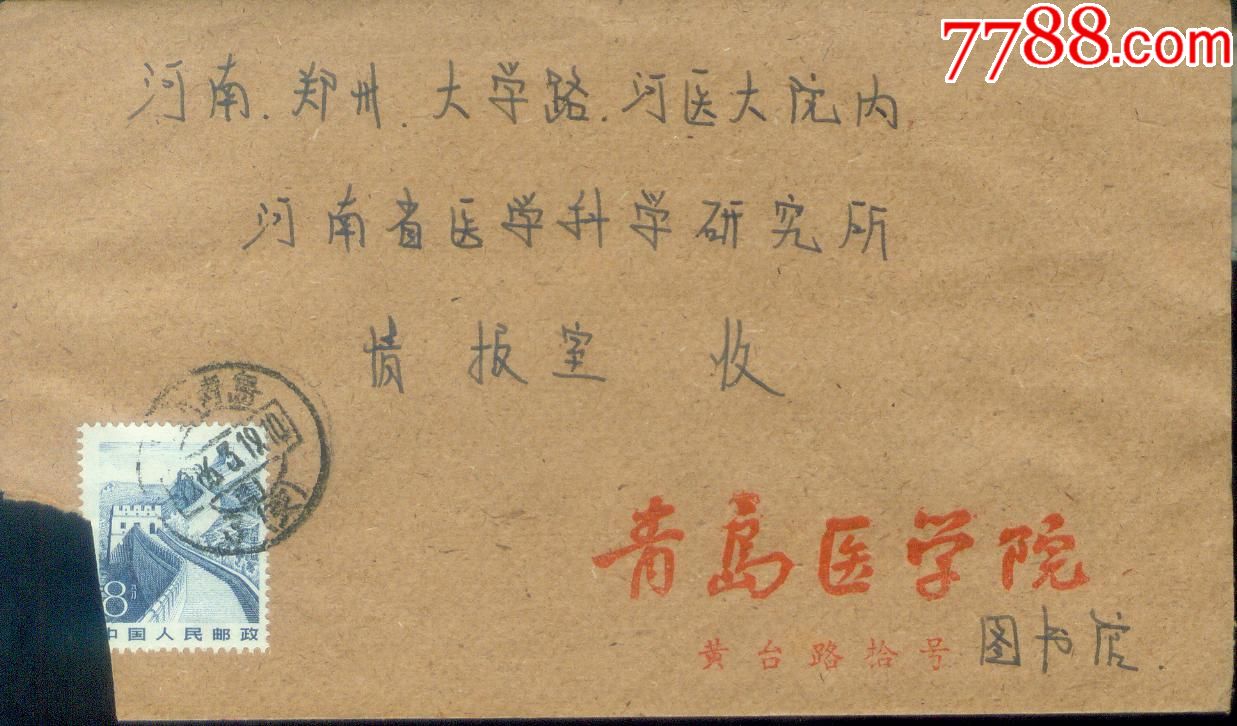 7788.com
河南.郑州.大学路.河医大院内
河南省医学科学研究所
情报室 收
青岛
86.3.19.10
8分
中国人民邮政
青岛医学院
黄台路拾号 图书馆.